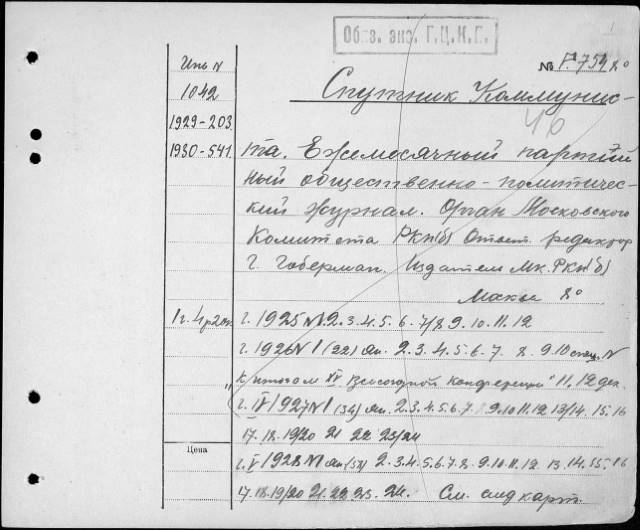 Обяз. экз. Г.Ц.К.П.
№ Г.754 8°
Инв №
1042
1929-203
1930-541
Спутник Коммунис-
46
та. Ежемесячный партий
ный общественно-политичес-
кий журнал. Орган Московского
Комитета РКП(б) Ответ. редактор
Г. Гоберман. Издатель МК. РКП(б)
Москва 8°
г. 1925 №1.2.3.4.5.6.7/8 9.10.11.12
г. 1926 №1 (22) Ян. 2.3.4.5.6.7. 8. 9.10 спец. №
"К итогам XV Всесоюзной Конференции" 11.12 дек.
г. IV 1927 №1 (34) Ян. 2.3.4.5.6.7.8 9.10 11.12 13/14. 15.16
17.18.19/20 21 22 23/24
Цена
г. V 1928 №1 Ян (58) 2.3.4.5.6.7.8.9.10.11.12 13.14.15.16
17.18.19/20 21.22 23. 24. См. след карт.